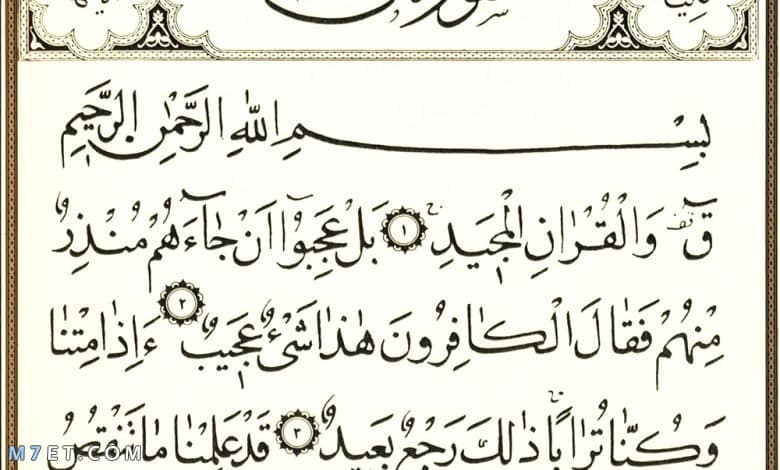 بِسْمِ اللهِ الرَّحْمٰنِ الرَّحِيمِ
قٓ وَالْقُرْاٰنِ الْمَجِيدِ ١ بَلْ عَجِبُٓوا اَنْ جَٓاءَهُمْ مُنْذِرٌ
مِنْهُمْ فَقَالَ الْكَافِرُونَ هٰذَا شَيْءٌ عَجِيبٌ ٢ ءَاِذَا مِتْنَا
وَكُنَّا تُرَابًا ذٰلِكَ رَجْعٌ بَعِيدٌ ٣ قَدْ عَلِمْنَا مَا تَنْقُصُ
M7ET.COM